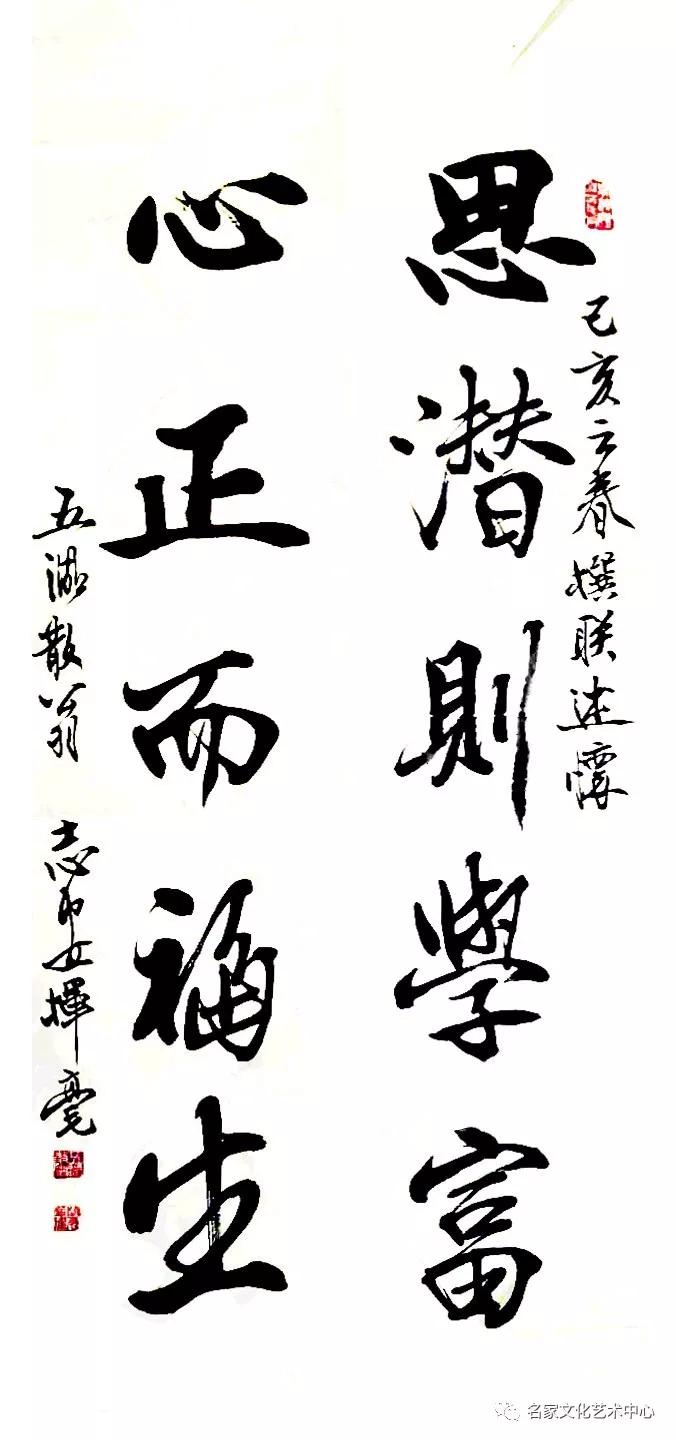 己亥之春撰联述懷
思潜則學富
心正而福生
五湖散翁 志 揮毫
名家文化艺术中心